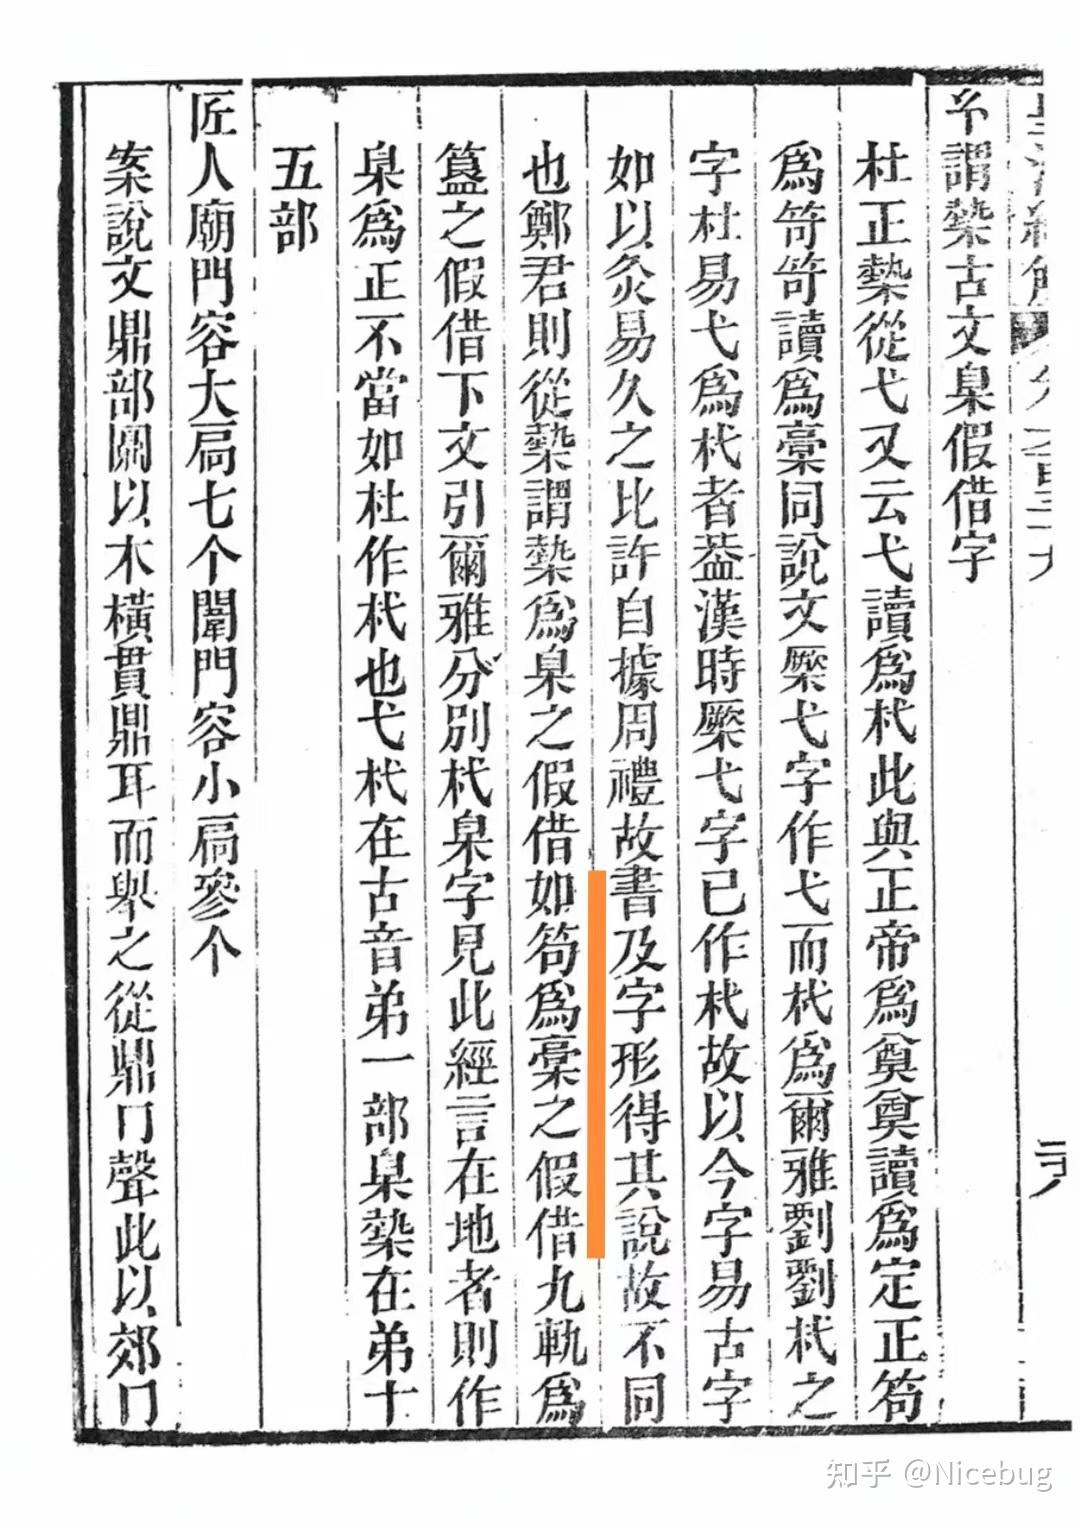 予謂槷古文臬假借字
杜正槷從弋又云弋讀爲杙此與正帝爲奠奠讀爲定正笱
爲笴笴讀爲稾同說文橜弋字作弋而杙爲爾雅劉劉杙之
字杜易弋爲杙者葢漢時橜弋字已作杙故以今字易古字
如以灸易久之比許自據周禮故書及字形得其說故不同
也鄭君則從槷謂槷爲臬之假借如笱爲稾之假借九軌爲
簋之假借下文引爾雅分別杙臬字見此經言在地者則作
臬爲正不當如杜作杙也弋杙在古音弟一部臬槷在弟十
五部
匠人廟門容大扃七个闈門容小扃參个
案說文鼎部鼏以木橫貫鼎耳而舉之從鼎冂聲此以郊冂
知乎 @Nicebug